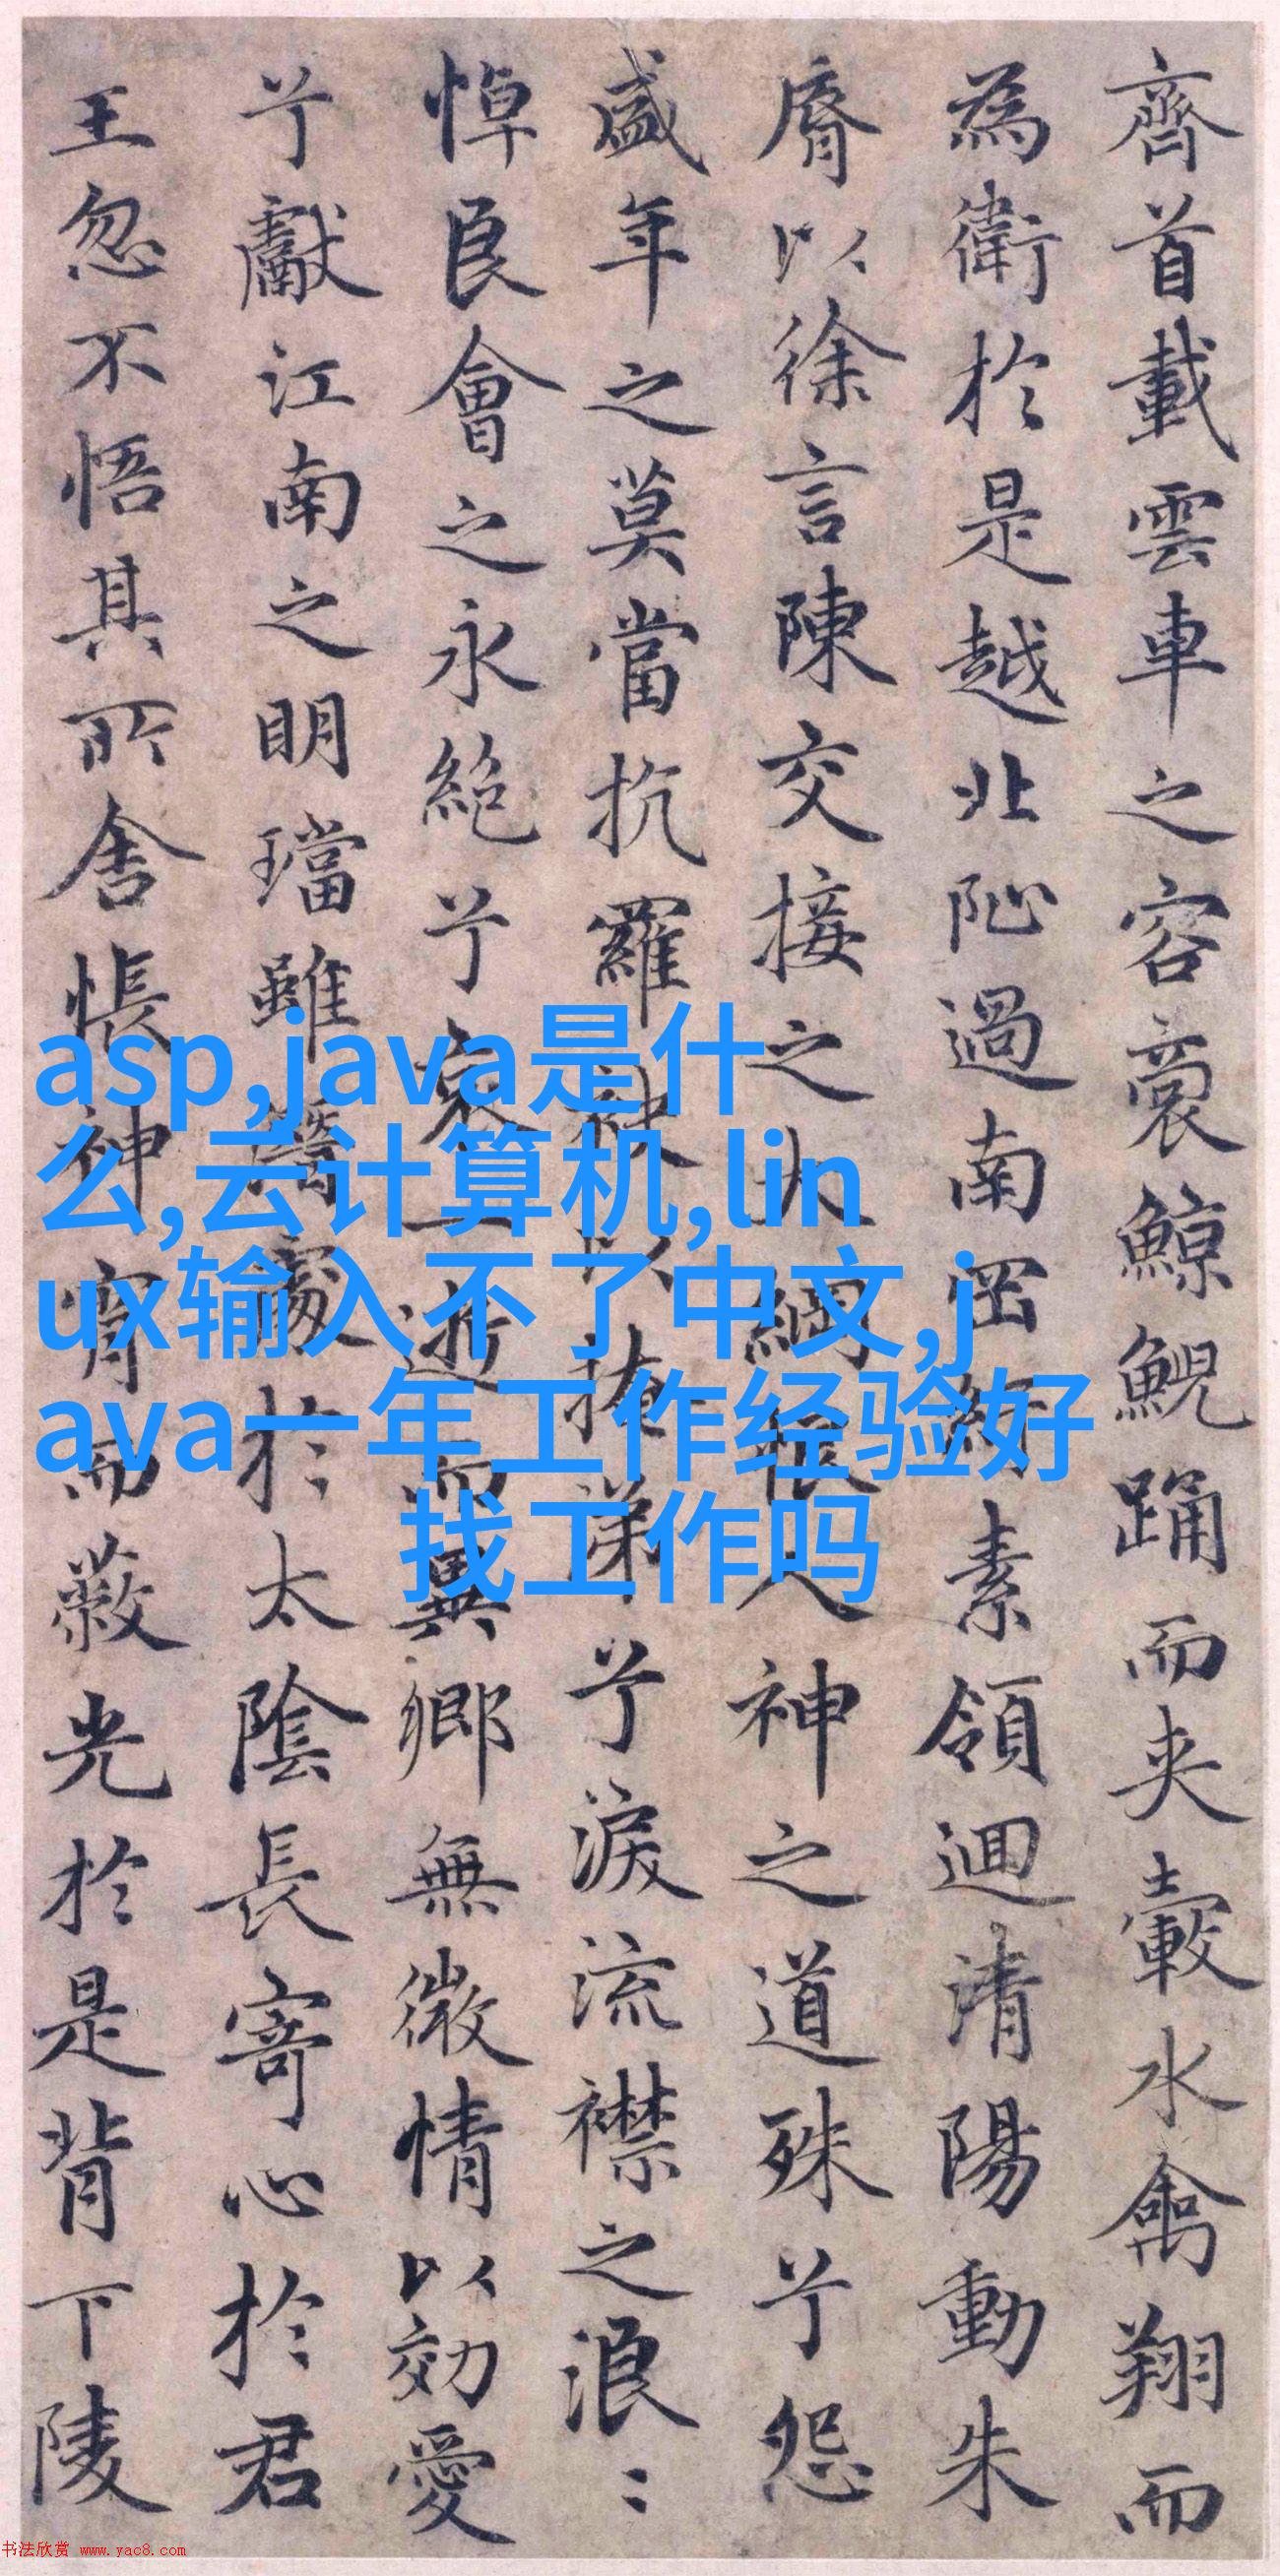 齊首載雲車之容裔鯨鯢踊而夾轂水禽翔而
為衛於是越北阯過南岡紆素領迴清陽動朱
脣以徐言陳交接之大綱恨人神之道殊兮怨
盛年之莫當抗羅袂以掩涕兮淚流襟之浪〻
悼良會之永絕兮哀一逝而異鄉無微情以効愛
兮獻江南之明璫雖潛處於太陰長寄心於君
王忽不悟其所舍悵神宵而蔽光於是背下陵
asp,java是什
么,云计算机,lin
ux输入不了中文,j
ava一年工作经验好
找工作吗
书法欣赏 www.yac8.com